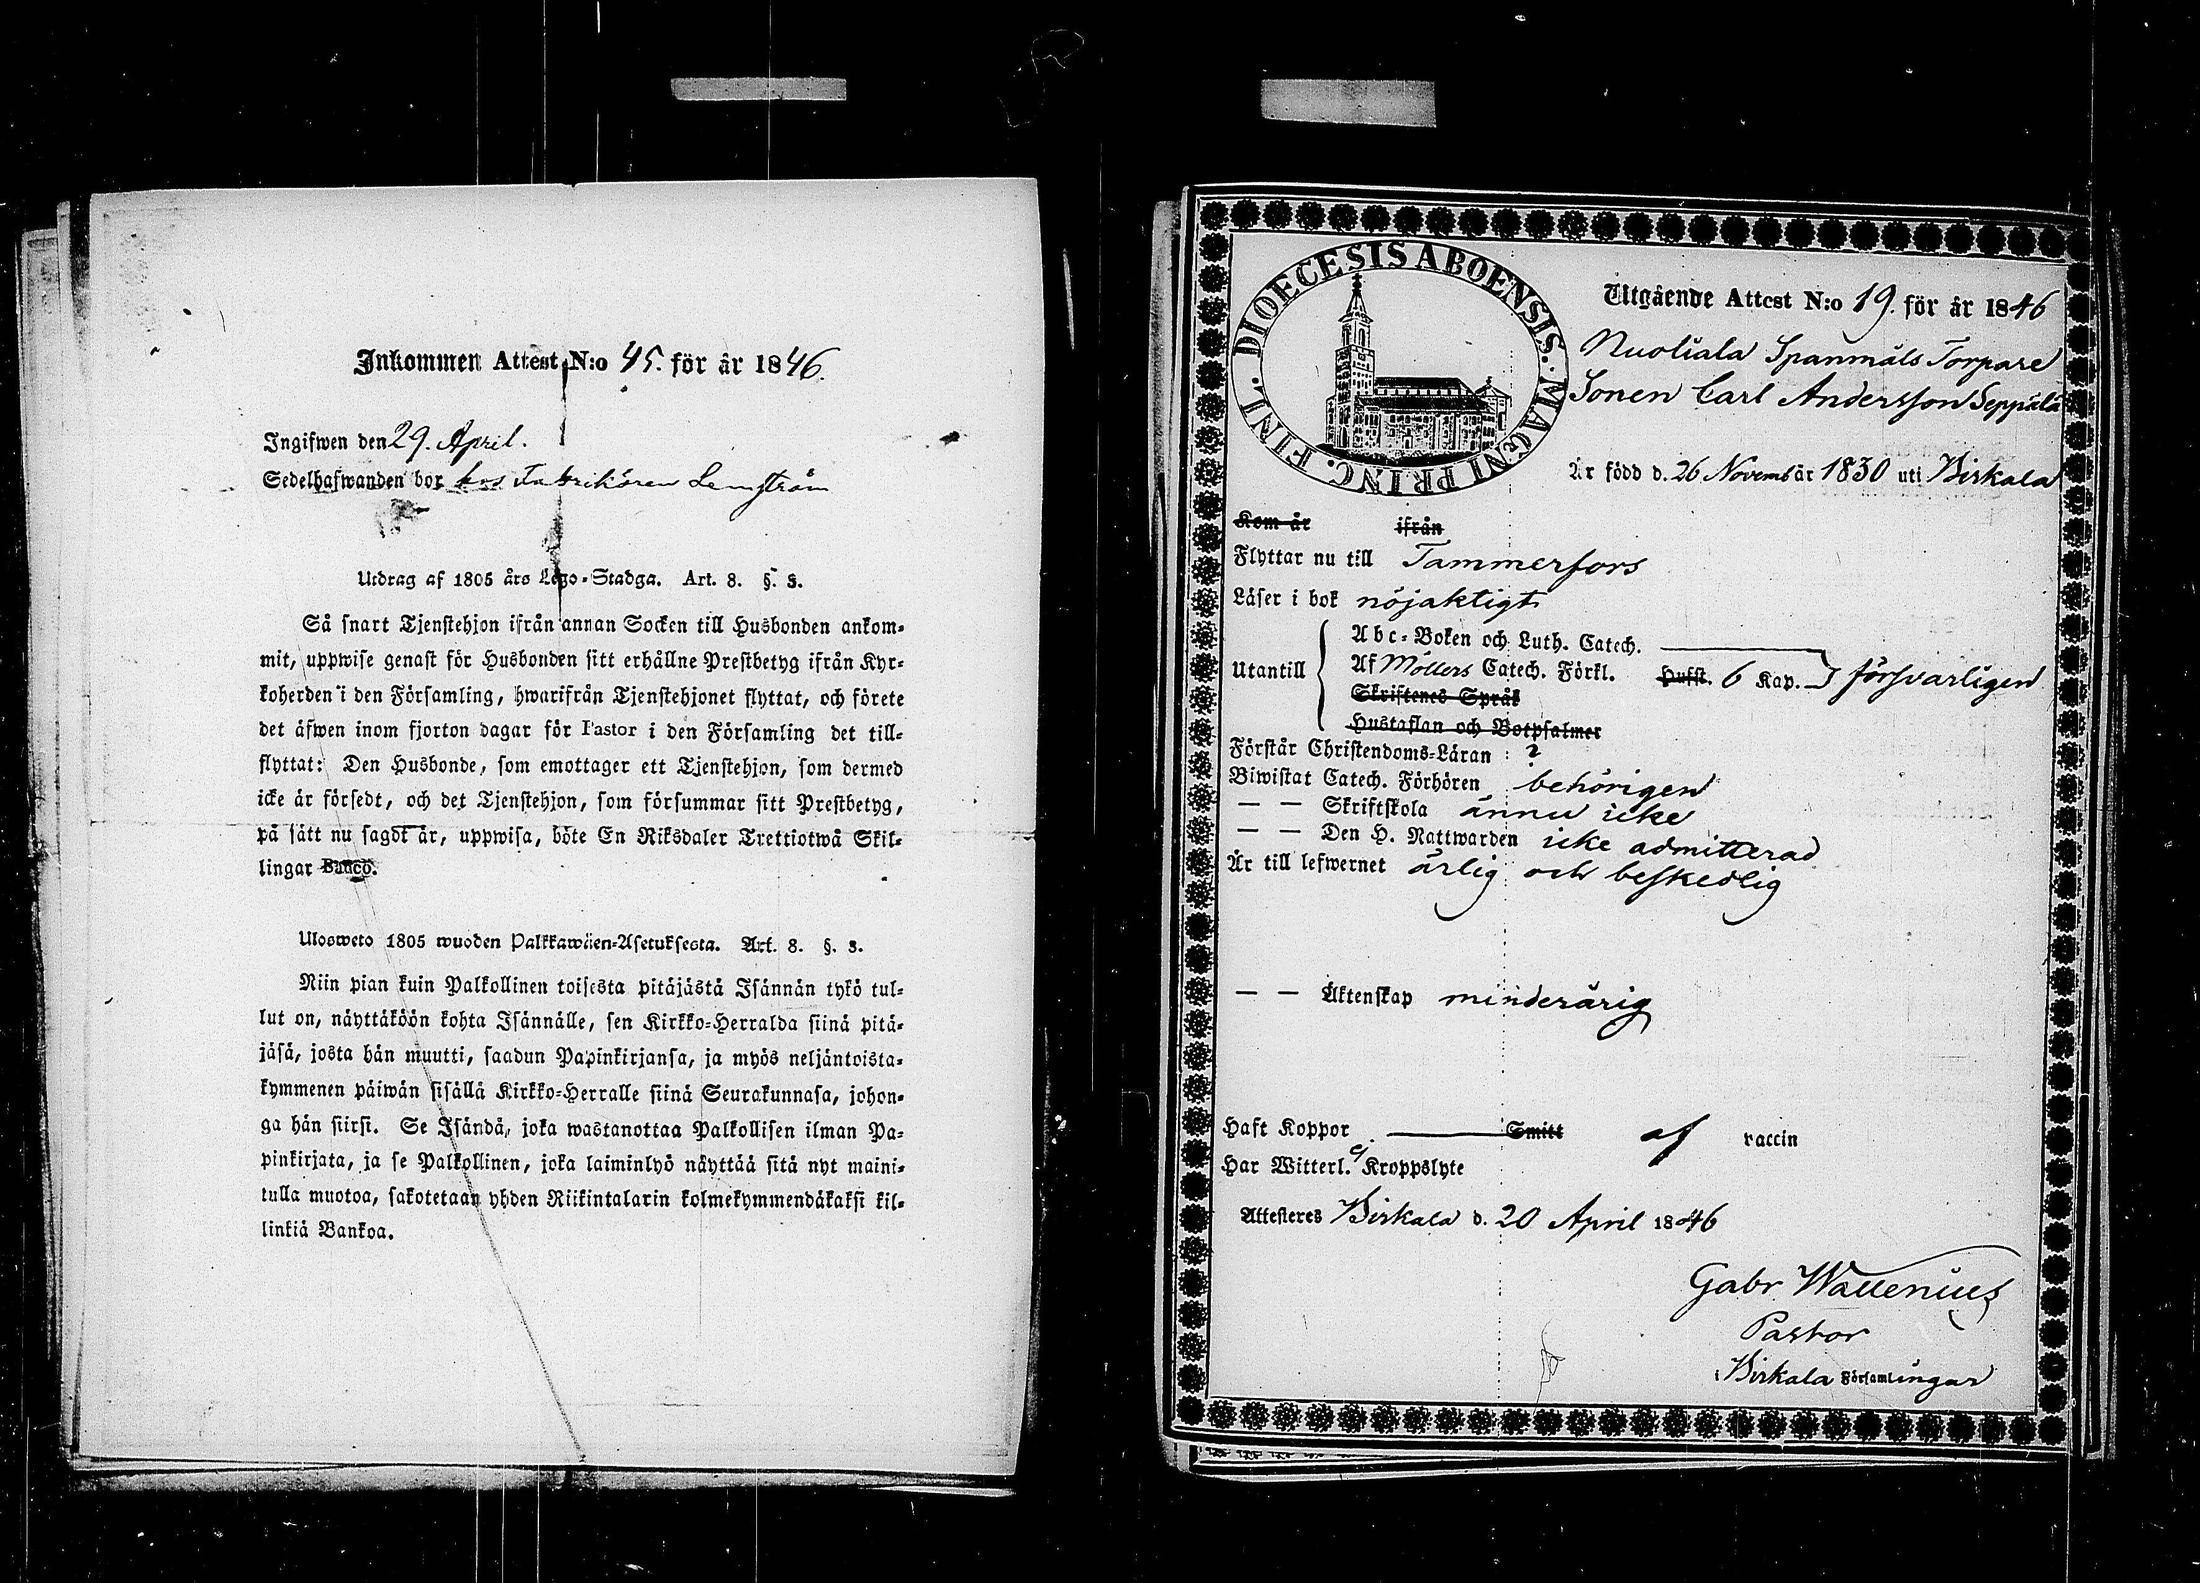 Inkommen Attest N:o 45. för år 1846.
Ingifwen den 29. April.
Sedelhafwanden bor hos Fabrikören Lemström
Utdrag af 1805 års Lego-Stadga. Art. 8. §. 3.
Så snart Tjenstehjon ifrån annan Socken till Husbonden ankom-
mit, uppwise genast för Husbonden sitt erhållne Prestbetyg ifrån Kyr-
koherden i den Församling, hwarifrån Tjenstehjonet flyttat, och förete
det äfwen inom fjorton dagar för Pastor i den Församling det till-
flyttat: Den Husbonde, som emottager ett Tjenstehjon, som dermed
icke är försedt, och det Tjenstehjon, som försummar sitt Prestbetyg,
på sätt nu sagdt är, uppwisa, böte En Riksdaler Trettiotwå Skil-
lingar Banco.
Ulosweto 1805 wuoden Palkkawäen-Asetuksesta. Art. 8. §. 3.
Niin pian kuin Palkollinen toisesta pitäjästä Isännän tykö tul-
lut on, näyttäköön kohta Isännälle, sen Kirkko-Herralda siinä pitä-
jäsä, josta hän muutti, saadun Papinkirjansa, ja myös neljäntoista-
kymmenen päiwän sisällä Kirkko-Herralle siinä Seurakunnasa, johon-
ga hän siirsi. Se Isändä, joka wastanottaa Palkollisen ilman Pa-
pinkirjata, ja se Palkollinen, joka laiminlyö näyttää sitä nyt maini-
tulla muotoa, sakotetaan yhden Riikintalarin kolmekymmendäkaksi kil-
linkiä Bankoa.
DIOECESIS ABOENSIS. MAGNI PRINC. FINL.
Utgående Attest N:o 19. för år 1846
Nuoliala Spanmåls Torpare
Sonen Carl Andersson Seppälä
Är född d. 26 Novemb år 1830 uti Birkala
Kom år ifrån
Flyttar nu till Tammerfors
Läser i bok nöjaktigt
Utantill
Abc-Boken och Luth. Catech.
Af Möllers Catech. Förkl. Hufst. 6 Kap. försvarligen
Skriftenes Språk
Hustaflan och Botpsalmer
Förstår Christendoms-Läran :
Biwistat Catech. Förhören behörigen
— — Skriftskola ännu icke
— — Den H. Nattwarden icke admitterad
Är till lefwernet ärlig och beskedlig
— — Äktenskap minderårig
Haft Koppor Smitt af vaccin
Har Witterl. ej Kroppslyte
Attesteres Birkala d. 20 April 1846
Gabr Wallenius
Pastor
Birkala Församlingar